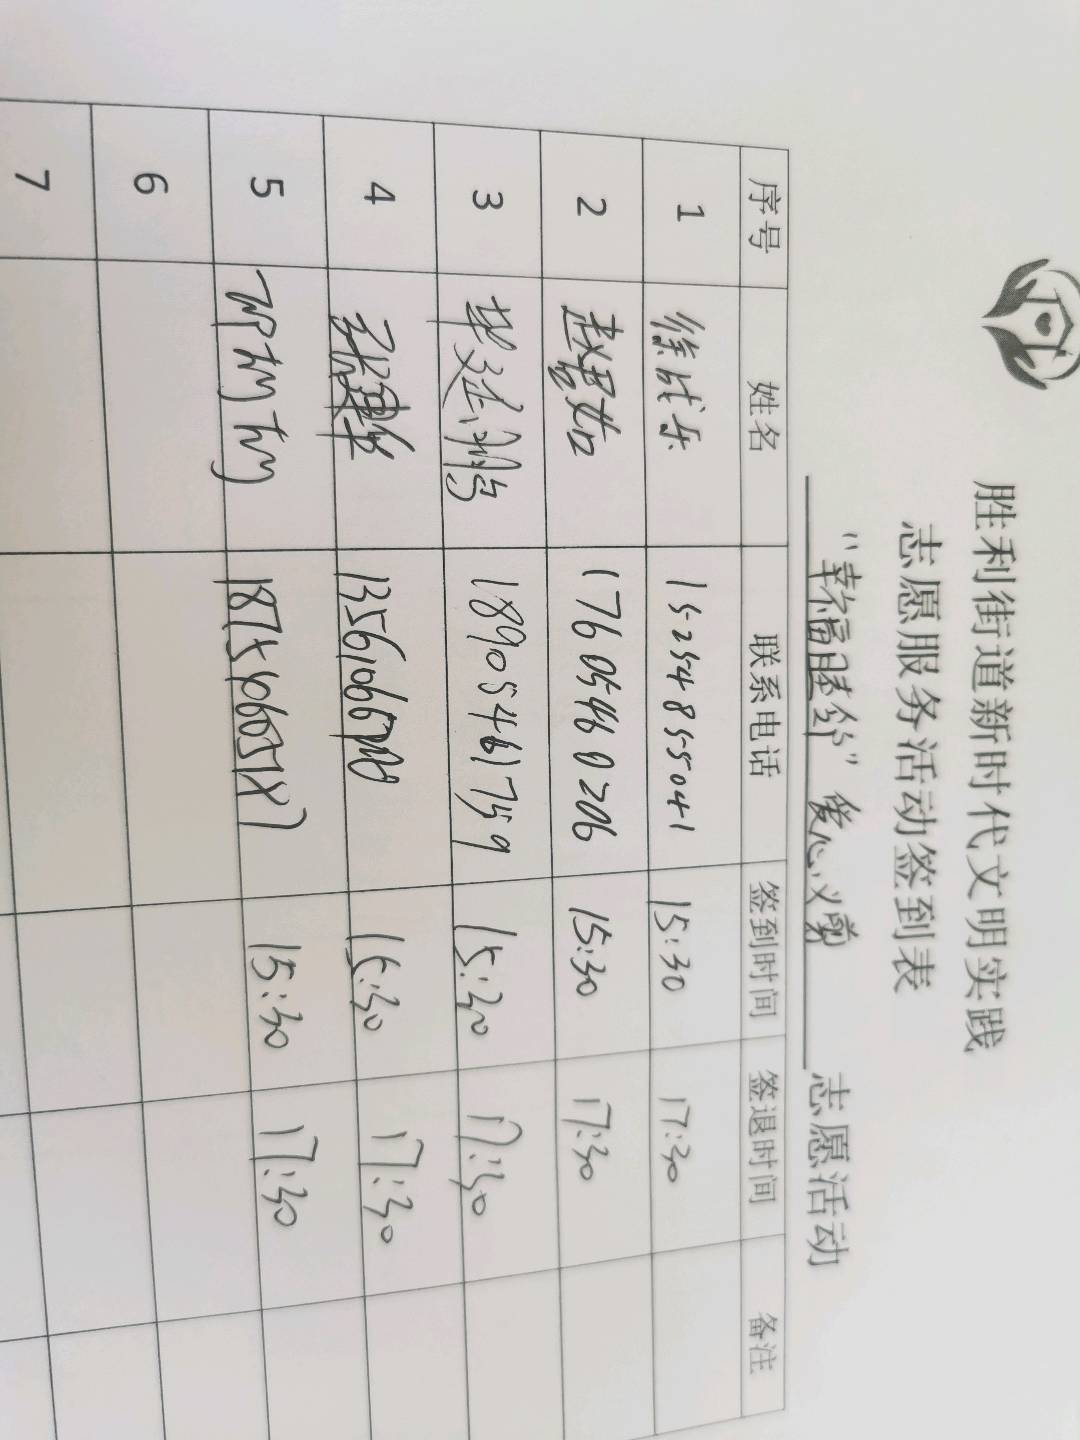 胜利街道新时代文明实践
志愿服务活动签到表
“幸福胜利” 爱心义剪 志愿活动
序号 姓名 联系电话 签到时间 签退时间 备注
1 15254855041 15:30 17:30
2 赵君茹 17605460206 15:30 17:30
3 18905461759 15:30 17:30
4 15:30 17:30
5 15:30 17:30
6
7